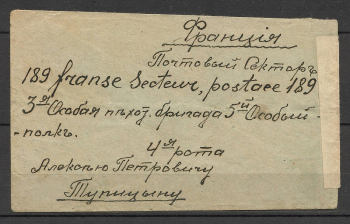 Франція
Почтовый Секторъ
189 franse Secteur, postace 189
3я Особая пѣхот. бригада 5й Особый
- полкъ.
4я рота
Алексѣю Петровичу
Тупицыну